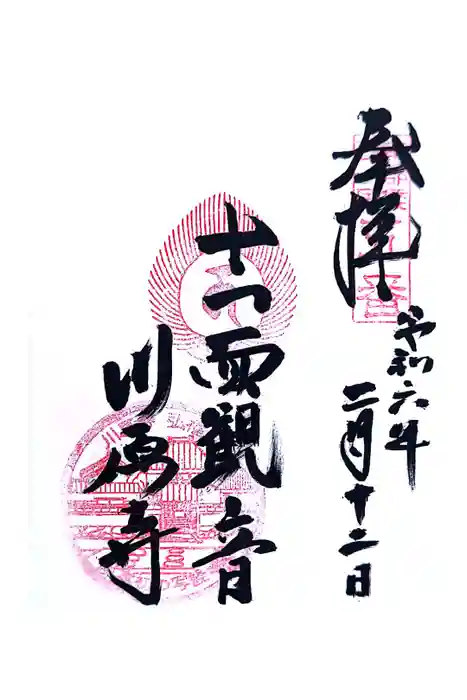 奉拝
令和六年
二月十二日
十一面観音
川原寺